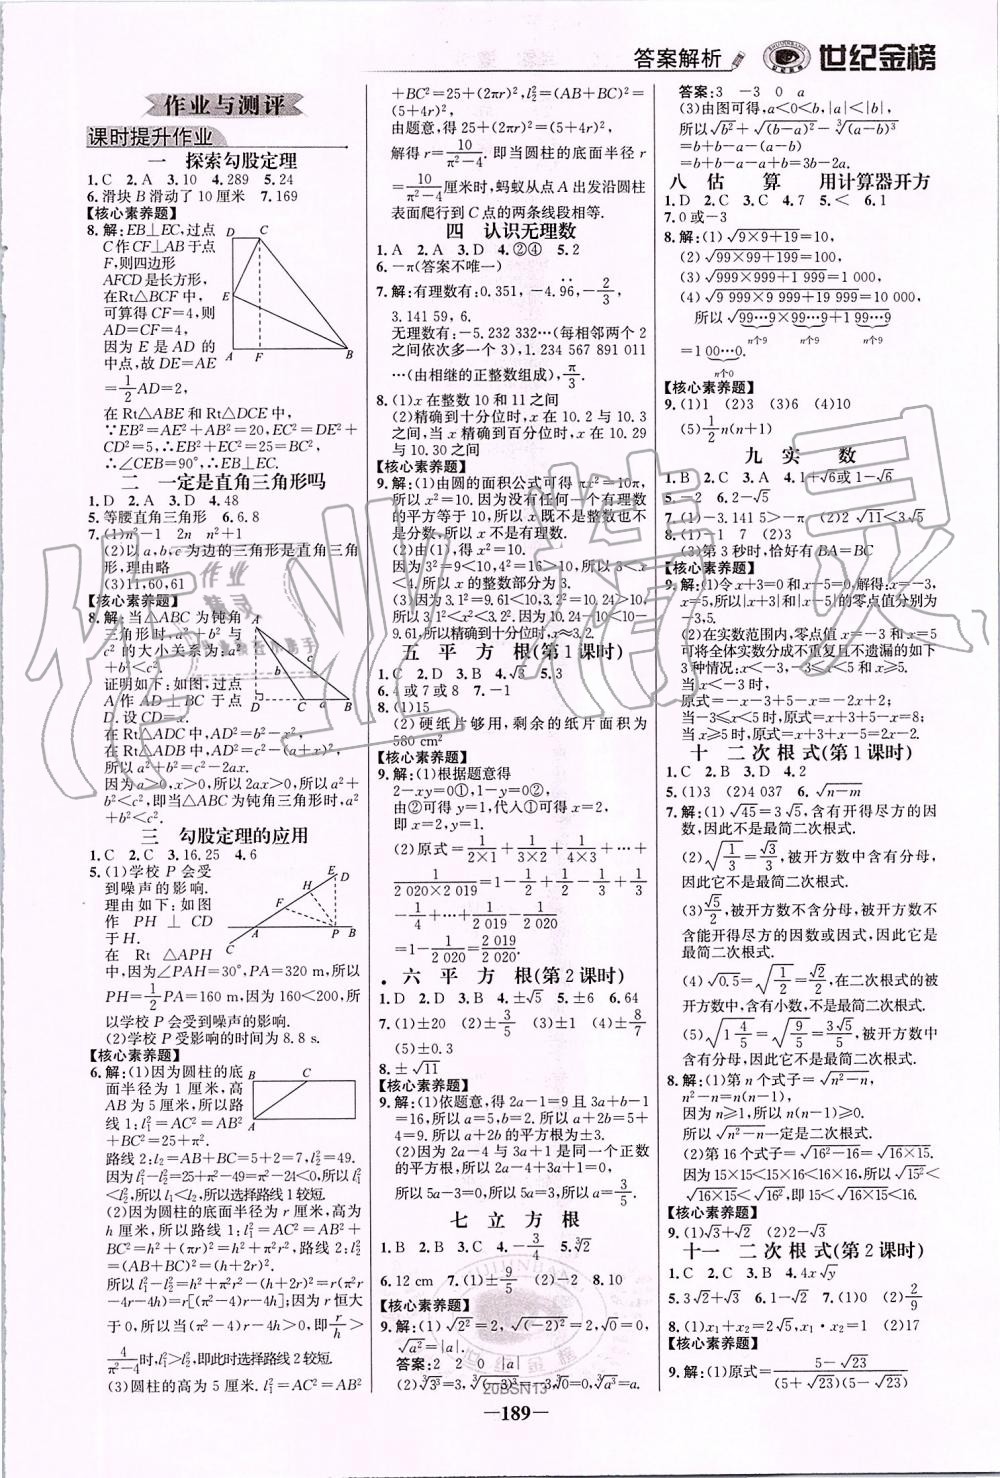 答案解析
世纪金榜
作业与测评
课时提升作业
一 探索勾股定理
1.C 2.A 3.10 4.289 5.24
6.滑块 B 滑动了 10 厘米 7.169
【核心素养题】
8.解:EB⊥EC,过点
C 作 CF⊥AB 于点
F,则四边形
AFCD 是长方形,
在Rt△BCF 中,
可算得 CF=4,则
AD=CF=4,
因为 E 是 AD 的
中点,故 DE=AE
=1/2AD=2,
在Rt△ABE 和Rt△DCE 中,
∵EB²=AE²+AB²=20,EC²=DE²+
CD²=5,∴EB²+EC²=25=BC²,
∴∠CEB=90°,∴EB⊥EC.
二 一定是直角三角形吗
1.D 2.A 3.D 4.48
5.等腰直角三角形 6.6.8
7.(1)n²-1 2n n²+1
(2)以 a,b,c 为边的三角形是直角三角
形,理由略
(3)11,60,61
【核心素养题】
8.解:当△ABC 为钝角
三角形时,a²+b² 与
c² 的大小关系为:a²
+b²<c².
证明如下:如图,过点
A 作 AD⊥BC 于点
D.设 CD=x.
在Rt△ADC 中,AD²=b²-x²,
在Rt△ADB 中,AD²=c²-(a+x)²,
所以 a²+b²=c²-2ax.
因为 a>0,x>0,所以 2ax>0,所以 a²+
b²<c²,即当△ABC 为钝角三角形时,a²
+b²<c².
三 勾股定理的应用
1.C 2.C 3.16.25 4.6
5.(1)学校 P 会受
到噪声的影响.
理由如下:如图
作 PH⊥CD
于 H.
在 Rt△APH
中,因为∠PAH=30°,PA=320 m,所以
PH=1/2PA=160 m,因为 160<200,所
以学校 P 会受到噪声的影响.
(2)学校 P 受影响的时间为 8.8 s.
【核心素养题】
6.解:(1)因为圆柱的底
面半径为 1 厘米,高
AB 为 5 厘米,所以路
线 1:l₁²=AC²=AB²+
BC²=25+π².
路线 2:l₂=AB+BC=5+2=7,l₂²=49.
因为l₁²-l₂²=25+π²-49=π²-24<0,所以l₁²
<l₂²,所以 l₁<l₂,所以选择路线 1 较短.
(2)因为圆柱的底面半径为 r 厘米,高为
h 厘米,所以路线 1:l₁²=AC²=AB²+
BC²=h²+(πr)²=h²+π²r²,路线 2:
l₂²=(AB+BC)²=(h+2r)².
所以l₁²-l₂²=h²+(πr)²-(h+2r)²=r(π²r
-4r-4h)=r[(π²-4)r-4h],因为 r 恒大
于 0,所以当(π²-4)r-4h>0,即r/h>
4/(π²-4)时,l₁²>l₂²,即此时选择路线 2 较短.
(3)圆柱的高为 5 厘米,l₁²=AC²=AB²
+BC²=25+(πr)²,l₂²=(AB+BC)²=
(5+4r)².
由题意,得 25+(πr)²=(5+4r)².
解得 r=10/(π²-4).即当圆柱的底面半径 r
=10/(π²-4)厘米时,蚂蚁从点 A 出发沿圆柱
表面爬行到 C 点的两条线段相等.
四 认识无理数
1.A 2.A 3.D 4.②④ 5.2
6.-π(答案不唯一)
7.解:有理数有:0.351,-4.9̇6̇,-2/3,
3.141 59,6.
无理数有:-5.232 332…(每相邻两个 2
之间依次多一个 3),1.234 567 891 011
…(由相继的正整数组成),π/3.
8.(1)x 在整数 10 和 11 之间
(2)精确到十分位时,x 在 10.2 与 10.3
之间;当 x 精确到百分位时,x 在 10.29
与 10.30 之间
【核心素养题】
9.解:(1)由圆的面积公式可得 πx²=10π,
所以 x²=10.因为没有任何一个有理数
的平方等于 10,所以 x 既不是整数也不
是分数,所以 x 不是有理数.
(2)由(1)得,x²=10,
因为 3²=9<10,4²=16>10,所以 3<x
<4,所以 x 的整数部分为 3.
(3)因为 3.1²=9.61<10,3.2²=10.24>10,所以
3.1²<x²<3.2².因为 10.24-10<10-
9.61,所以精确到十分位时,x≈3.2.
五 平方根(第 1 课时)
1.C 2.D 3.B 4.√3 5.3
6.4 或 7 或 8 7.-1
8.(1)15
(2)硬纸片够用,剩余的纸片面积为
560 cm²
【核心素养题】
9.解:(1)根据题意得
2-xy=0①,1-y=0②,
由②可得 y=1,代入①可得 x=2,
即 x=2,y=1.
(2)原式=1/(2×1)+1/(3×2)+1/(4×3)+…+
1/(2 020×2 019)=1-1/2+1/2-1/3+1/3
-1/4+…+1/2 019-1/2 020
=1-1/2 020=2 019/2 020.
六 平方根(第 2 课时)
1.D 2.D 3.B 4.±√5 5.±6 6.64
7.(1)±20 (2)±3/5 (3)±1 (4)±8/7
(5)±0.3
8.±√11
【核心素养题】
9.解:(1)依题意,得 2a-1=9 且 3a+b-1
=16,所以 a=5,b=2.所以 a+2b=5+
4=9.所以 a+2b 的平方根为±3.
(2)因为 2a-4 与 3a+1 是同一个正数
的平方根,所以 2a-4+3a+1=0.
所以 5a-3=0,5a=3,所以 a=3/5.
七 立方根
1.B 2.B 3.C 4.-3/4 5.∛2
6.12 cm 7.(1)±9/5 (2)-2 8.10
【核心素养题】
9.解:(1)√2²=2,√(-2)²=2,√0=0,
√a²=|a|.
答案:2 2 0 |a|
(2)∛3³=3,∛(-3)³=-3,∛0=0,∛a³=a.
答案:3 -3 0 a
(3)由图可得,a<0<b,|a|<|b|,
所以√b²+√(b-a)²-∛(a-b)³
=b+b-a-(a-b)
=b+b-a-a+b=3b-2a.
八 估算 用计算器开方
1.D 2.C 3.C 4.7 5.< 6.1
7.0 或-3
8.解:(1)√(9×9+19)=10,
(2)√(99×99+199)=100,
(3)√(999×999+1 999)=1 000,
(4)√(9 999×9 999+19 999)=10 000,
所以√(99…9×99…9+1 99…9)
n个9 n个9 n个9
=1 00…0.
n个0
【核心素养题】
9.(1)1 (2)3 (3)6 (4)10
(5)1/2n(n+1)
九 实数
1.B 2.C 3.A 4.1+√6或 1-√6
5.-2 6.2-√5
7.(1)-3.141 5>-π (2)2√11<3√5
8.(1)-1 7 (2)3
(3)第 3 秒时,恰好有 BA=BC
【核心素养题】
9.解:(1)令x+3=0和x-5=0,解得:x=-3,
x=5,所以|x+3|和|x-5|的零点值分别为
-3,5.
(2)在实数范围内,零点值 x=-3 和 x=5
可将全体实数分成不重复且不遗漏的如下
3 种情况:x<-3;-3≤x<5;x≥5.
当 x<-3 时,
原式=-x-3+5-x=-2x+2;
当-3≤x<5 时,原式=x+3+5-x=8;
当 x≥5 时,原式=x+3+x-5=2x-2.
十 二次根式(第 1 课时)
1.C 2.B 3.D 4.2
5.(1)3 (2)4 037 6.√(n-m)
7.解:(1)√45=3√5,含有开得尽方的因
数,因此不是最简二次根式.
(2)√(1/3)=√3/3,被开方数中含有分母,
因此它不是最简二次根式.
(3)√5/2,被开方数不含分母,被开方数不
含能开得尽方的因数或因式,因此它是
最简二次根式.
(4)√0.5=√(1/2)=√2/2,在二次根式的被
开方数中,含有小数,不是最简二次根式.
(5)√(1 4/5)=√(9/5)=3√5/5,被开方数中
含有分母,因此它不是最简二次根式.
8.解:(1)第 n 个式子=√(n²-n),
n²-n=n(n-1).
因为 n≥1,所以 n(n-1)≥0.
所以√(n²-n)一定是二次根式.
(2)第 16 个式子=√(16²-16)=√(16×15).
因为 15×15<15×16<16×16,所以√15²<
√(16×15)<√16²,即 15<√(16×15)<16.
【核心素养题】
9.(1)√3+√2 (2)2-√3
十一 二次根式(第 2 课时)
1.C 2.C 3.B 4.4x√y
5.3√2+√3 6.1-√7 7.(1)0 (2)2/9
8.(1)x₁+x₂=2√5,x₁·x₂=2 (2)17
【核心素养题】
9.解:(1)原式=(5-√23)/((5+√23)(5-√23))
20BSN13
—189—